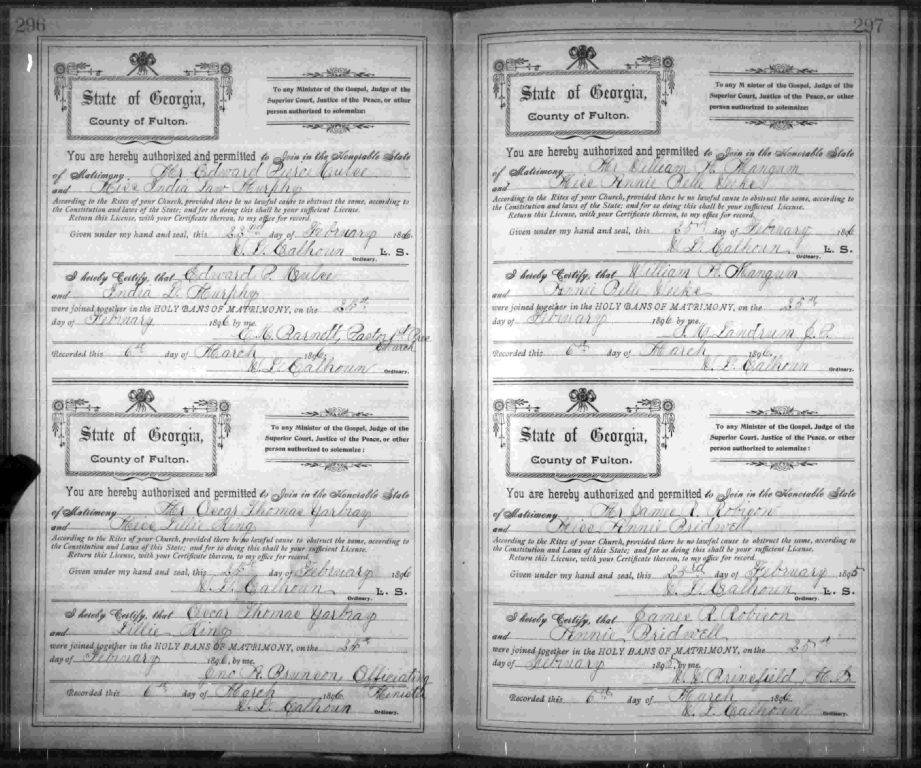 296
State of Georgia,
County of Fulton.
To any Minister of the Gospel, Judge of the
Superior Court, Justice of the Peace, or other
person authorized to solemnize:
You are hereby authorized and permitted to Join in the Honorable State
of Matrimony Mr Edward Pierce
and Miss India Murphy
According to the Rites of your Church, provided there be no lawful cause to obstruct the same, according to
the Constitution and laws of the State; and for so doing this shall be your sufficient License.
Return this License, with your Certificate thereon, to my office for record.
Given under my hand and seal, this day of February 1896
W. L. Calhoun L. S.
Ordinary.
I hereby Certify, that Edward P.
and India L. Murphy
were joined together in the HOLY BANS OF MATRIMONY, on the 25th
day of February 1896 by me.
E. H. Barnett, Pastor 1st Pres
Church
Recorded this 6th day of March 1896.
W. L. Calhoun Ordinary.
State of Georgia,
County of Fulton.
To any Minister of the Gospel, Judge of the
Superior Court, Justice of the Peace, or other
person authorized to solemnize:
You are hereby authorized and permitted to Join in the Honorable State
of Matrimony Mr Oscar Thomas Yarbray
and Miss Lillie King
According to the Rites of your Church, provided there be no lawful cause to obstruct the same, according to
the Constitution and Laws of this State; and for so doing this shall be your sufficient License.
Return this License, with your Certificate thereon, to my office for record.
Given under my hand and seal, this day of February 1896
W. L. Calhoun L. S.
Ordinary.
I hereby Certify, that Oscar Thomas Yarbray
and Lillie King
were joined together in the HOLY BANS OF MATRIMONY, on the 25th
day of February 1896, by me.
R. Brunson Officiating
Minister
Recorded this 6th day of March 1896.
W. L. Calhoun Ordinary.
297
State of Georgia,
County of Fulton.
To any Minister of the Gospel, Judge of the
Superior Court, Justice of the Peace, or other
person authorized to solemnize:
You are hereby authorized and permitted to Join in the Honorable State
of Matrimony Mr William H. Mangum
and Miss Annie Belle
According to the Rites of your Church, provided there be no lawful cause to obstruct the same, according to
the Constitution and laws of the State; and for so doing this shall be your sufficient License.
Return this License, with your Certificate thereon, to my office for record.
Given under my hand and seal, this 25th day of February 1896
W. L. Calhoun L. S.
Ordinary.
I hereby Certify, that William H. Mangum
and Annie Belle
were joined together in the HOLY BANS OF MATRIMONY, on the 25th
day of February 1896 by me.
Landrum J. P.
Recorded this 6th day of March 1896.
W. L. Calhoun Ordinary.
State of Georgia,
County of Fulton.
To any Minister of the Gospel, Judge of the
Superior Court, Justice of the Peace, or other
person authorized to solemnize:
You are hereby authorized and permitted to Join in the Honorable State
of Matrimony Mr James R. Robison
and Miss Annie Bridwell
According to the Rites of your Church, provided there be no lawful cause to obstruct the same, according to
the Constitution and Laws of this State; and for so doing this shall be your sufficient License.
Return this License, with your Certificate thereon, to my office for record.
Given under my hand and seal, this 23rd day of February 1895
W. L. Calhoun L. S.
Ordinary.
I hereby Certify, that James R. Robison
and Annie Bridwell
were joined together in the HOLY BANS OF MATRIMONY, on the 25th
day of February by me.
Brinsfield, M. G.
Recorded this 6th day of March 1896
W. L. Calhoun Ordinary.